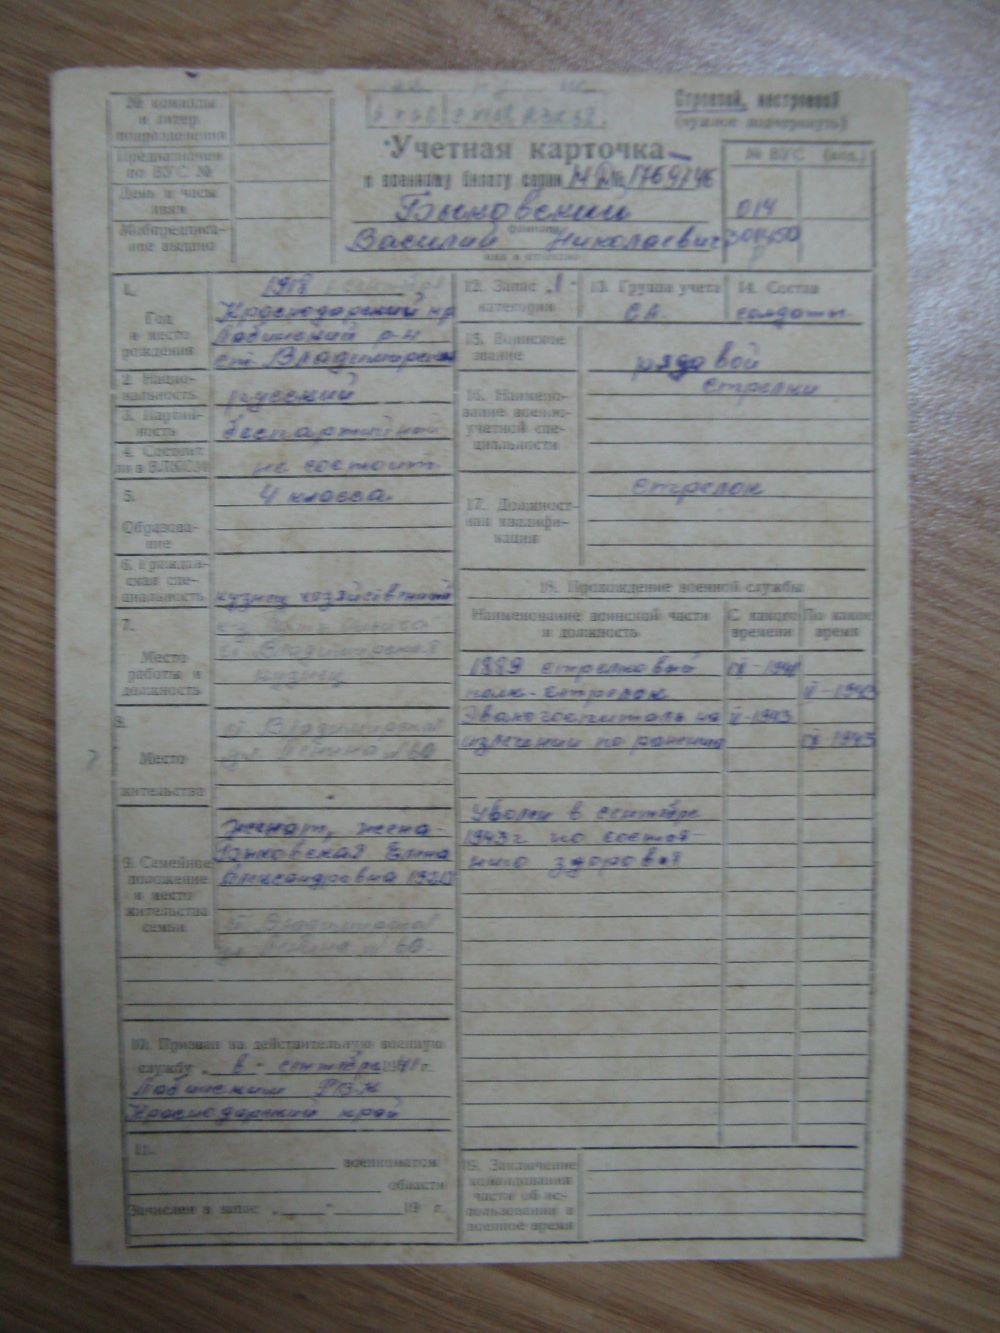 № команды
и литер
подразделения
Предназначен
по ВУС №
День и часы
явки
Мобпредписа-
ние выдано
Строевой, нестроевой
(нужное подчеркнуть)
Учетная карточка
к военному билету серии
фамилия
Василий Николаевич
имя и отчество
№ ВУС (код.)
014
1.
Год
и место
рождения
1918
Краснодарский кр
Лабинский р-н
ст. Владимирская
2. Нацио-
нальность
русский
3. Партий-
ность
беспартийный
4. Состоит
ли в ВЛКСМ
не состоит
5.
Образова-
ние
4 класса.
6. Граждан-
ская спе-
циальность
кузнец хозяйственный
7.
Место
работы и
должность
ст. Владимирская
кузнец
8.
Место
жительства
ст. Владимирская
ул. Ленина № 60
9. Семейное
положение
и место
жительства
семьи
женат, жена-
Елена
Александровна
ст. Владимирская
ул. Ленина № 60.
10. Призван на действительную военную
службу в - сентябре 1941 г.
Лабинским РВК
Краснодарский край
11.
военкоматом
области
Зачислен в запас „ - 19 г.
12. Запас „1-
категории
13. Группа учета
СА.
14. Состав
солдаты.
15. Воинское
звание
рядовой
16. Наимено-
вание военно-
учетной спе-
циальности
стрелки
17. Должност-
ная квалифи-
кация
стрелок
18. Прохождение военной службы
Наименование воинской части
и должность
С какого
времени
По какое
время
1889 стрелковый IX-1941
полк-стрелок II-1943
Эвакогоспиталь на II-1943
излечении по ранению IX-1943
Уволен в сентябре
1943 г. по состоя-
нию здоровья
19. Заключение
командования
части об ис-
пользовании в
военное время